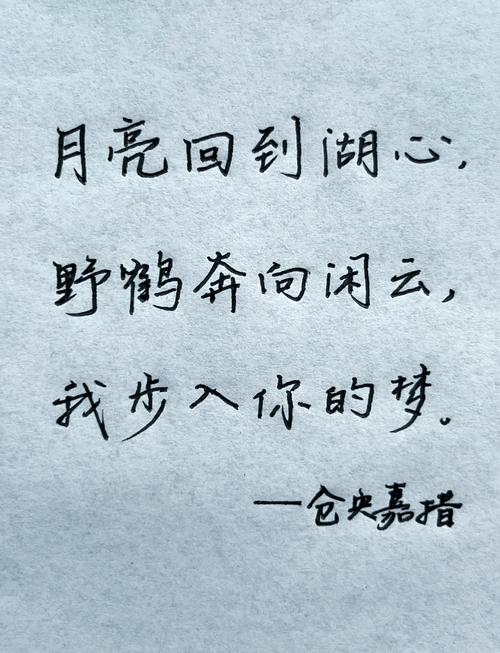 月亮回到湖心，
野鹤奔向闲云，
我步入你的梦。
——仓央嘉措